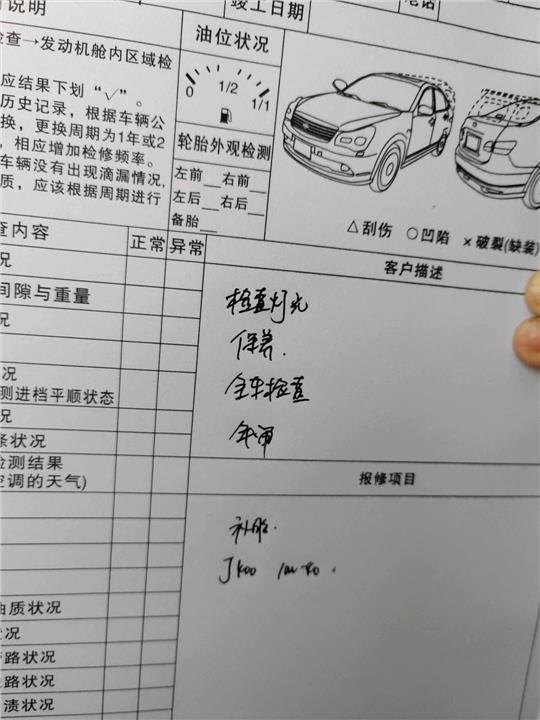 说明
竣工日期
电话
检查→发动机舱内区域检
应结果下划“√”。
历史记录，根据车辆公
换，更换周期为1年或2
，相应增加检修频率。
车辆没有出现滴漏情况，
质，应该根据周期进行
油位状况
0 1/2 1/1
轮胎外观检测
左前__右前__
左后__右后__
备胎__
△刮伤 ○凹陷 ×破裂(缺装)
查内容 正常 异常
客户描述
况
间隙与重量
况
况
测进档平顺状态
况
条状况
检测结果
空调的天气)
检查灯光
保养.
全车检查
年审
报修项目
补胎.
油质状况
状况
管路状况
路状况
渍状况